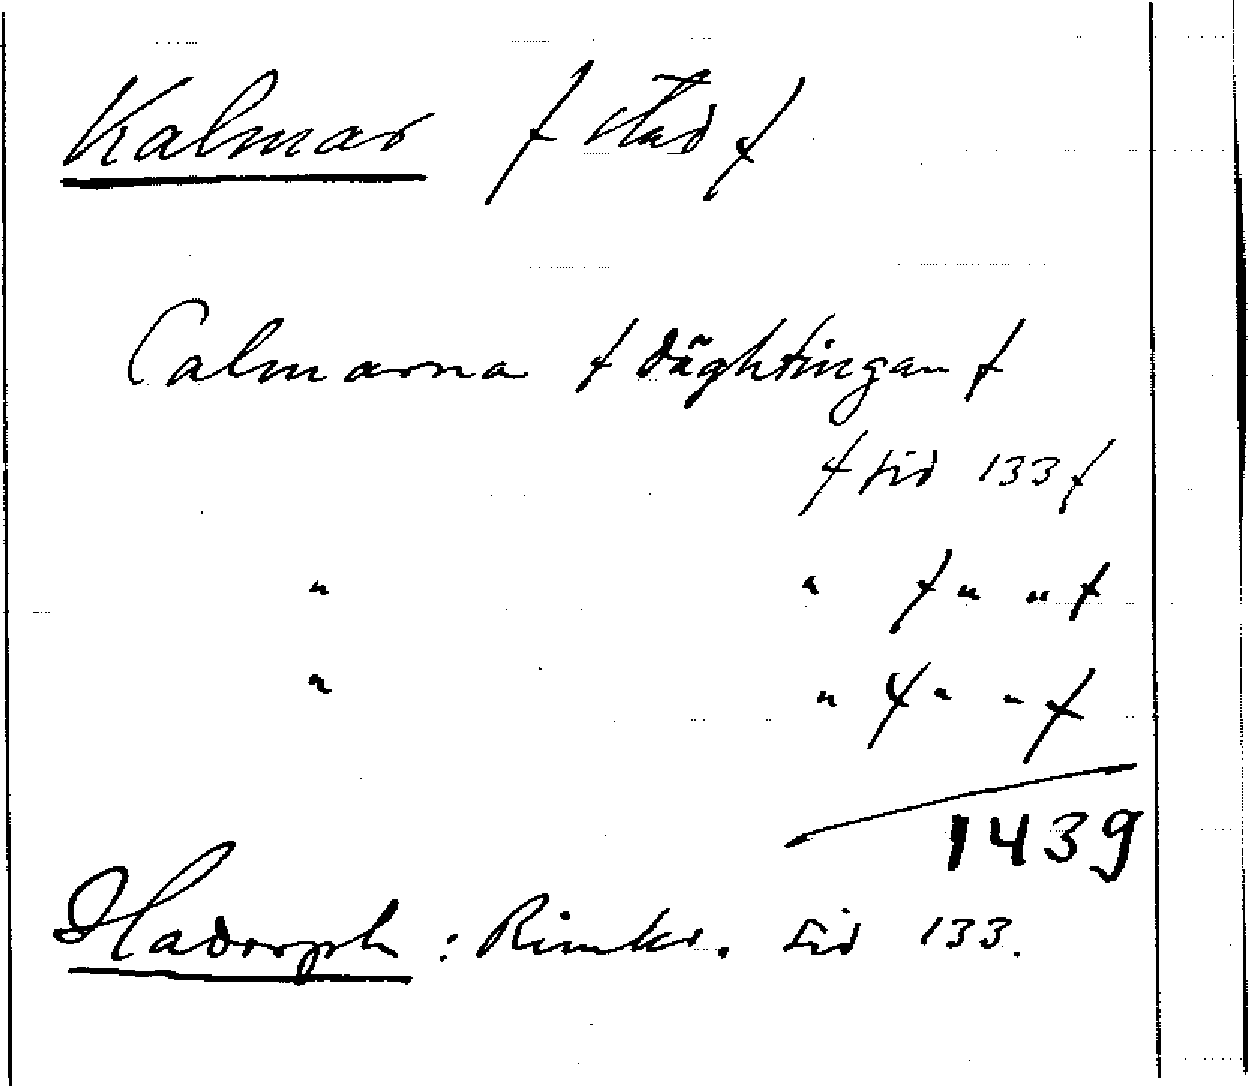 Kalmar f stad f
Calmarna f däghtingan f
f sid 133 f
" " f " " f
" " f " " f
1439
Hadorph : Rimkr. sid 133.